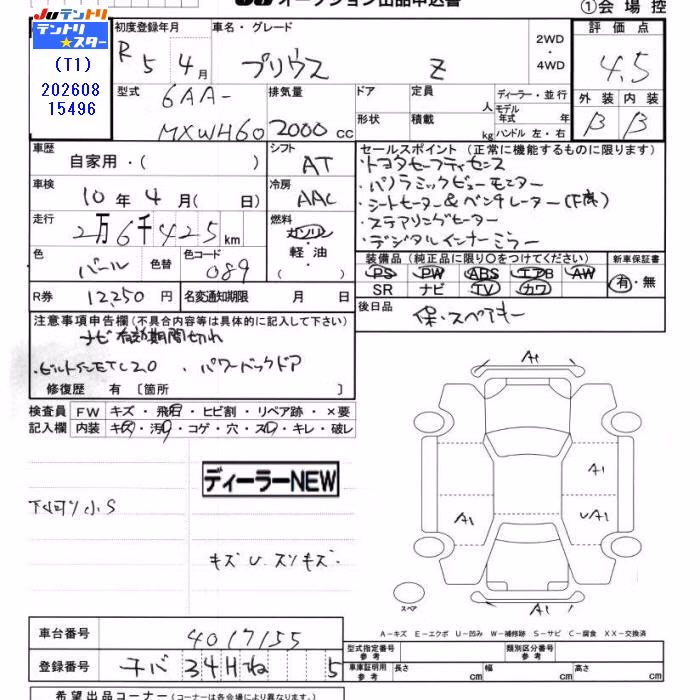 JU テントリ
テントリ★スター
(T1)
202608
15496
JU オークション出品申込書
①会場控
初度登録年月
R5年4月
車名・グレード
プリウス Z
2WD・4WD
評価点
4.5
外装 内装
B B
型式
6AA-
MXWH60
排気量
2000cc
ドア
形状
定員 人
積載 kg
ディーラー・並行
モデル年式 年
ハンドル 左・右
車歴
自家用・( )
シフト
AT
車検
10年4月( 日)
冷房
AAC
走行
2万6千425km
燃料
ガソリン
軽油
( )
色
パール
色替
色コード
089
R券
12,250円
名変通知期限 月 日
セールスポイント(正常に機能するものに限ります)
・トヨタセーフティセンス
・パノラミックビューモニター
・シートヒーター&ベンチレーター(F席)
・ステアリングヒーター
・デジタルインナーミラー
装備品(純正品に限り○をつけてください)
PS PW ABS エアB AW
SR ナビ TV カワ
新車保証書
有・無
後日品
保・スペアキー
注意事項申告欄(不具合内容等は具体的に記入して下さい)
ナビ有効期間切れ
・ビルトインETC2.0 ・パワーバックドア
修復歴 有〔箇所 〕
検査員記入欄
FW キズ・飛石・ヒビ割・リペア跡・×要
内装 キズ・汚れ・コゲ・穴・スレ・キレ・破レ
ディーラーNEW
小S
キズ U スリキズ・
A1
A1
A1
UA1
A1
スペア
A−キズ E−エクボ U−凹み W−補修跡 S−サビ C−腐食 XX−交換済
車台番号
4017155
登録番号
34H 5
型式指定番号 参考
類別区分番号 参考
車庫証明用 参考 長さ cm 幅 cm 高さ cm
希望出品コーナー(コーナーは各会場により異なります。)